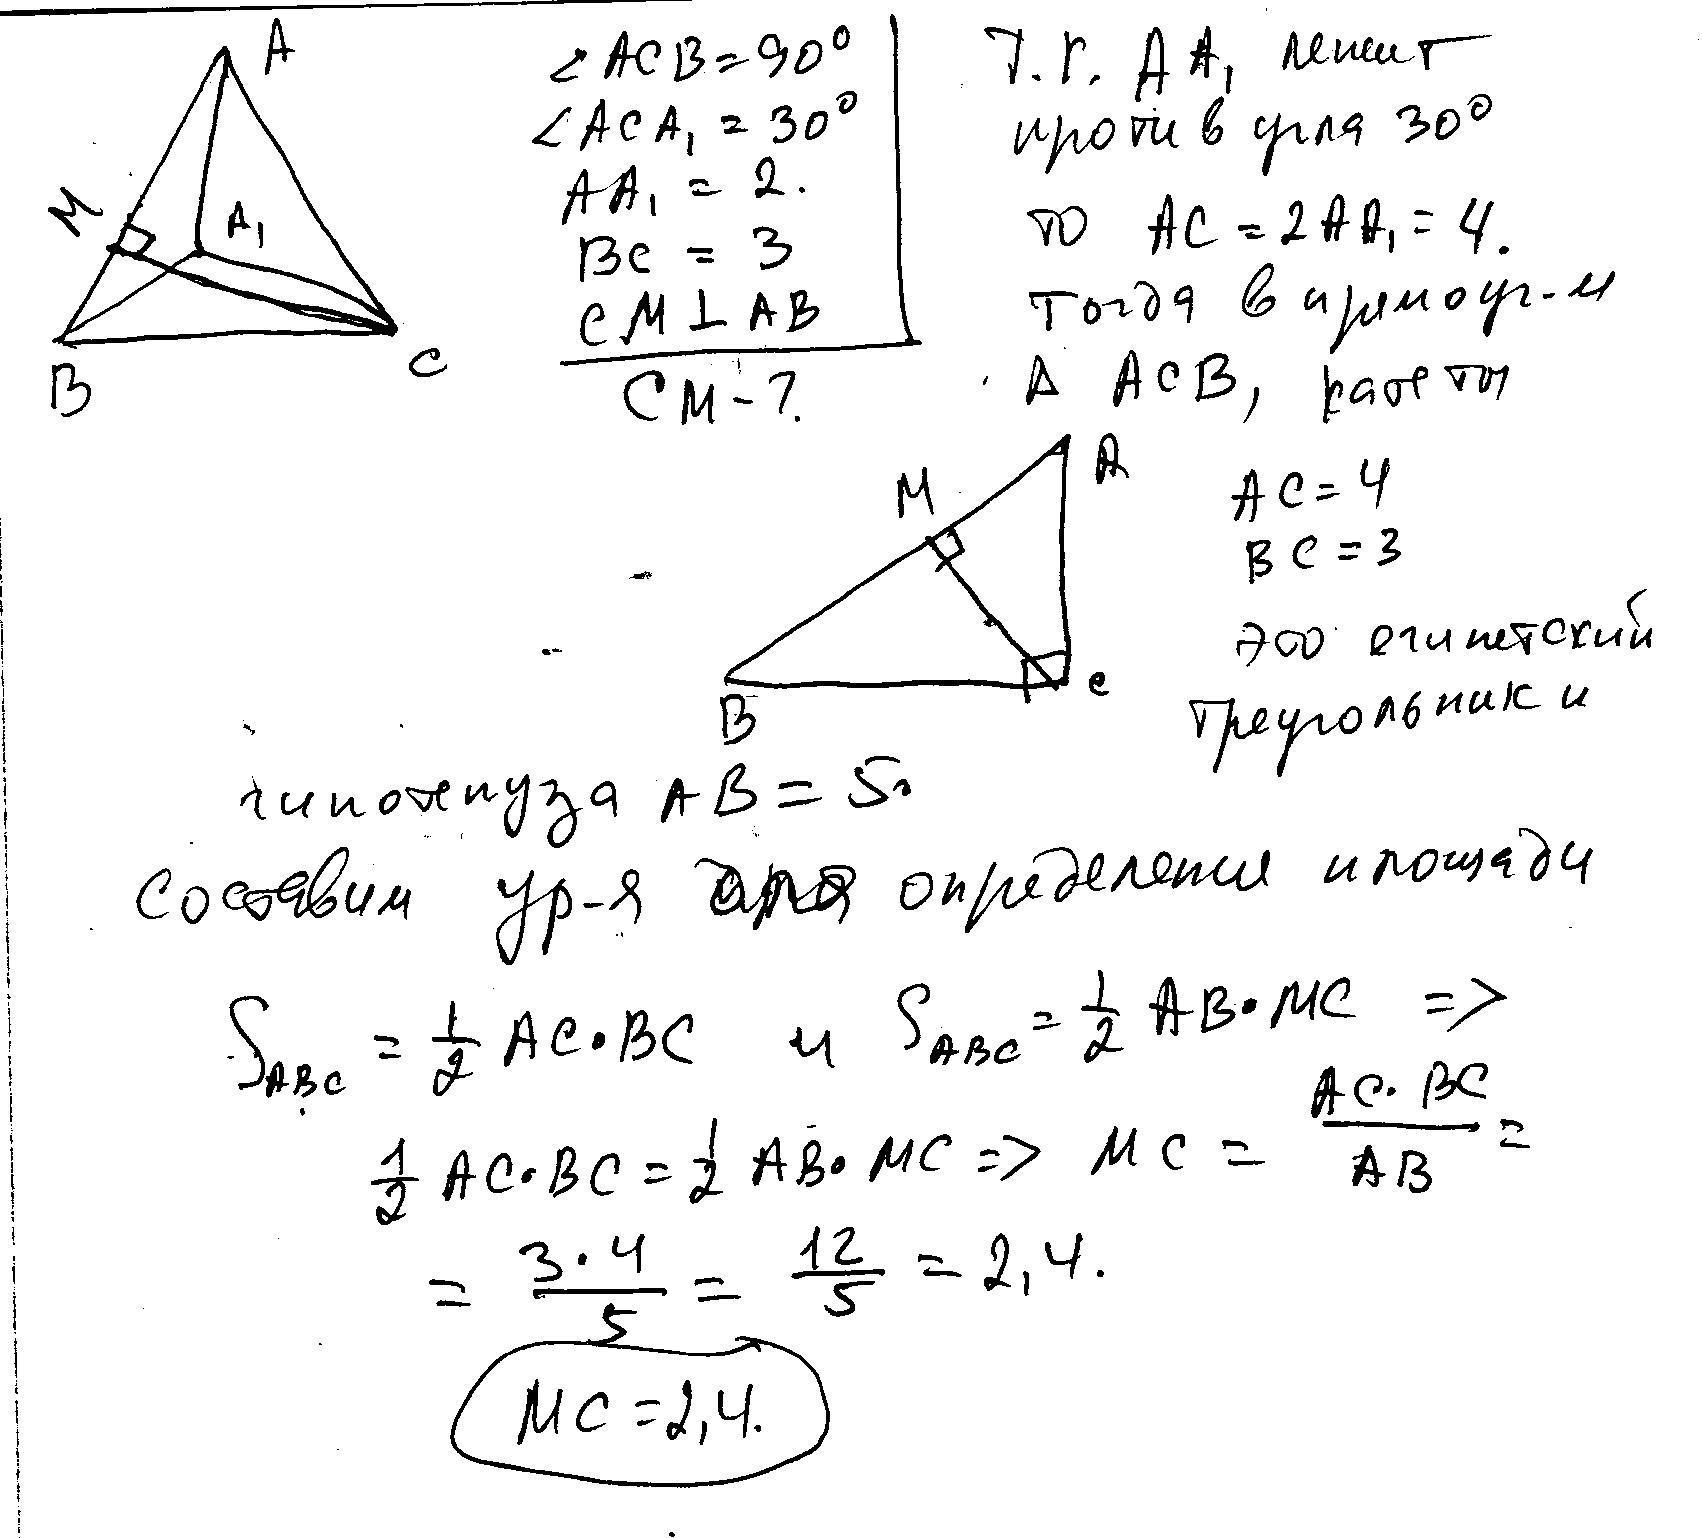 A
M
A₁
B
C
∠ACB = 90°
∠ACA₁ = 30°
AA₁ = 2.
BC = 3
CM ⊥ AB
CM - ?
Т.к. AA₁ лежит
против угла 30°
то AC = 2AA₁ = 4.
тогда в прямоуг-м
Δ ACB, катеты
A
M
B
C
AC = 4
BC = 3
это египетский
треугольник и
гипотенуза AB = 5.
составим ур-я для определения площади
S_ABC = 1/2 AC·BC и S_ABC = 1/2 AB·MC =>
1/2 AC·BC = 1/2 AB·MC => MC = AC·BC/AB =
= 3·4/5 = 12/5 = 2,4.
MC = 2,4.